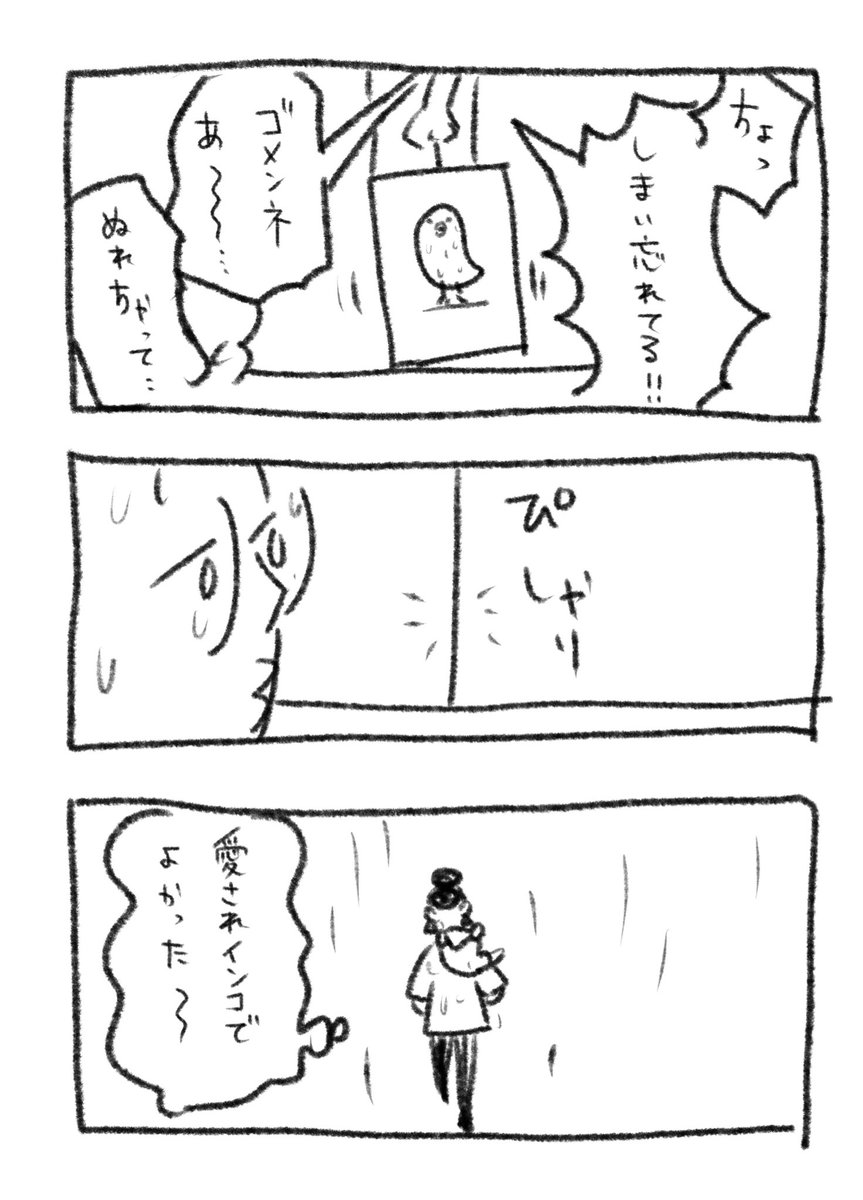 ちょっ
しまい忘れてる!!
ゴメンネ
あ〜〜…
ぬれちゃって…
ぴしゃり
愛されインコで
よかった〜